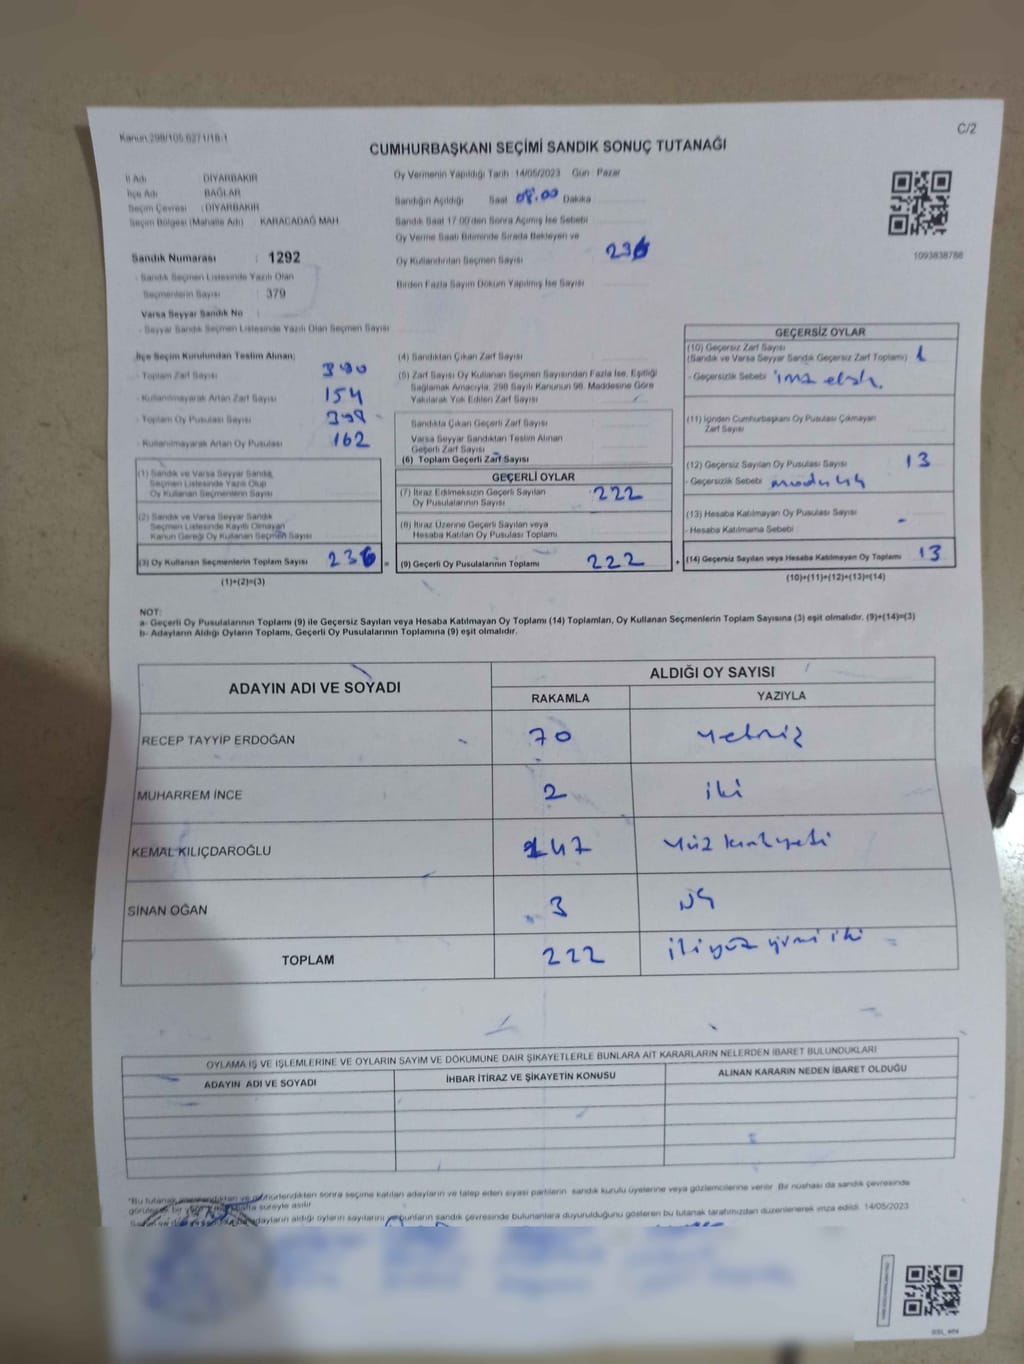 Kanun 298/105 6271/18-1
C/2
CUMHURBAŞKANI SEÇİMİ SANDIK SONUÇ TUTANAĞI
İl Adı DİYARBAKIR
İlçe Adı BAĞLAR
Seçim Çevresi : DİYARBAKIR
Seçim Bölgesi (Mahalle Adı) : KARACADAĞ MAH.
Sandık Numarası : 1292
- Sandık Seçmen Listesinde Yazılı Olan
Seçmenlerin Sayısı : 379
Varsa Seyyar Sandık No
- Seyyar Sandık Seçmen Listesinde Yazılı Olan Seçmen Sayısı
Oy Vermenin Yapıldığı Tarih 14/05/2023 Gün Pazar
Sandığın Açıldığı Saat 08.00 Dakika
Sandık Saat 17.00'den Sonra Açımış İse Sebebi
Oy Verme Saati Bitiminde Sırada Bekleyen ve
Oy Kullandırılan Seçmen Sayısı 236
Birden Fazla Sayım Döküm Yapılmış İse Sayısı
1093838788
İlçe Seçim Kurulundan Teslim Alınan;
- Toplam Zarf Sayısı
- Kullanılmayarak Artan Zarf Sayısı 154
- Toplam Oy Pusulası Sayısı 398
- Kullanılmayarak Artan Oy Pusulası 162
(1) Sandık ve Varsa Seyyar Sandık
Seçmen Listesinde Yazılı Olup
Oy Kullanan Seçmenlerin Sayısı
(2) Sandık ve Varsa Seyyar Sandık
Seçmen Listesinde Kayıtlı Olmayan
Kanun Gereği Oy Kullanan Seçmen Sayısı
(3) Oy Kullanan Seçmenlerin Toplam Sayısı 236 =
(1)+(2)=(3)
(4) Sandıktan Çıkan Zarf Sayısı
(5) Zarf Sayısı Oy Kullanan Seçmen Sayısından Fazla İse, Eşitliği
Sağlamak Amacıyla, 298 Sayılı Kanunun 98. Maddesine Göre
Yakılarak Yok Edilen Zarf Sayısı
Sandıkta Çıkan Geçerli Zarf Sayısı
Varsa Seyyar Sandıktan Teslim Alınan
Geçerli Zarf Sayısı
(6) Toplam Geçerli Zarf Sayısı
GEÇERLİ OYLAR
(7) İtiraz Edilmeksizin Geçerli Sayılan
Oy Pusulalarının Sayısı 222
(8) İtiraz Üzerine Geçerli Sayılan veya
Hesaba Katılan Oy Pusulası Toplamı
(9) Geçerli Oy Pusulalarının Toplamı 222 +
GEÇERSİZ OYLAR
(10) Geçersiz Zarf Sayısı
(Sandık ve Varsa Seyyar Sandık Geçersiz Zarf Toplamı) 1
- Geçersizlik Sebebi
(11) İçinden Cumhurbaşkanı Oy Pusulası Çıkmayan
Zarf Sayısı
(12) Geçersiz Sayılan Oy Pusulası Sayısı 13
- Geçersizlik Sebebi
(13) Hesaba Katılmayan Oy Pusulası Sayısı -
- Hesaba Katılmama Sebebi
(14) Geçersiz Sayılan veya Hesaba Katılmayan Oy Toplamı 13
(10)+(11)+(12)+(13)=(14)
NOT:
a- Geçerli Oy Pusulalarının Toplamı (9) ile Geçersiz Sayılan veya Hesaba Katılmayan Oy Toplamı (14) Toplamları, Oy Kullanan Seçmenlerin Toplam Sayısına (3) eşit olmalıdır. (9)+(14)=(3)
b- Adayların Aldığı Oyların Toplamı, Geçerli Oy Pusulalarının Toplamına (9) eşit olmalıdır.
ADAYIN ADI VE SOYADI
ALDIĞI OY SAYISI
RAKAMLA YAZIYLA
RECEP TAYYİP ERDOĞAN 70
MUHARREM İNCE 2 iki
KEMAL KILIÇDAROĞLU 147 yüz kırkyedi
SİNAN OĞAN 3 üç
TOPLAM 222 ikiyüz yirmi iki
OYLAMA İŞ VE İŞLEMLERİNE VE OYLARIN SAYIM VE DÖKÜMÜNE DAİR ŞİKAYETLERLE BUNLARA AİT KARARLARIN NELERDEN İBARET BULUNDUKLARI
ADAYIN ADI VE SOYADI İHBAR İTİRAZ VE ŞİKAYETİN KONUSU ALINAN KARARIN NEDEN İBARET OLDUĞU
sonra seçime katılan adayların ve talep eden siyasi partilerin sandık kurulu üyelerine veya gözlemcilerine verilir. Bir nüshası da sandık çevresinde
süreyle asılır.
adayların aldığı oyların sayılarını ve bunların sandık çevresinde bulunanlara duyurulduğunu gösteren bu tutanak tarafımızdan düzenlenerek imza edildi. 14/05/2023